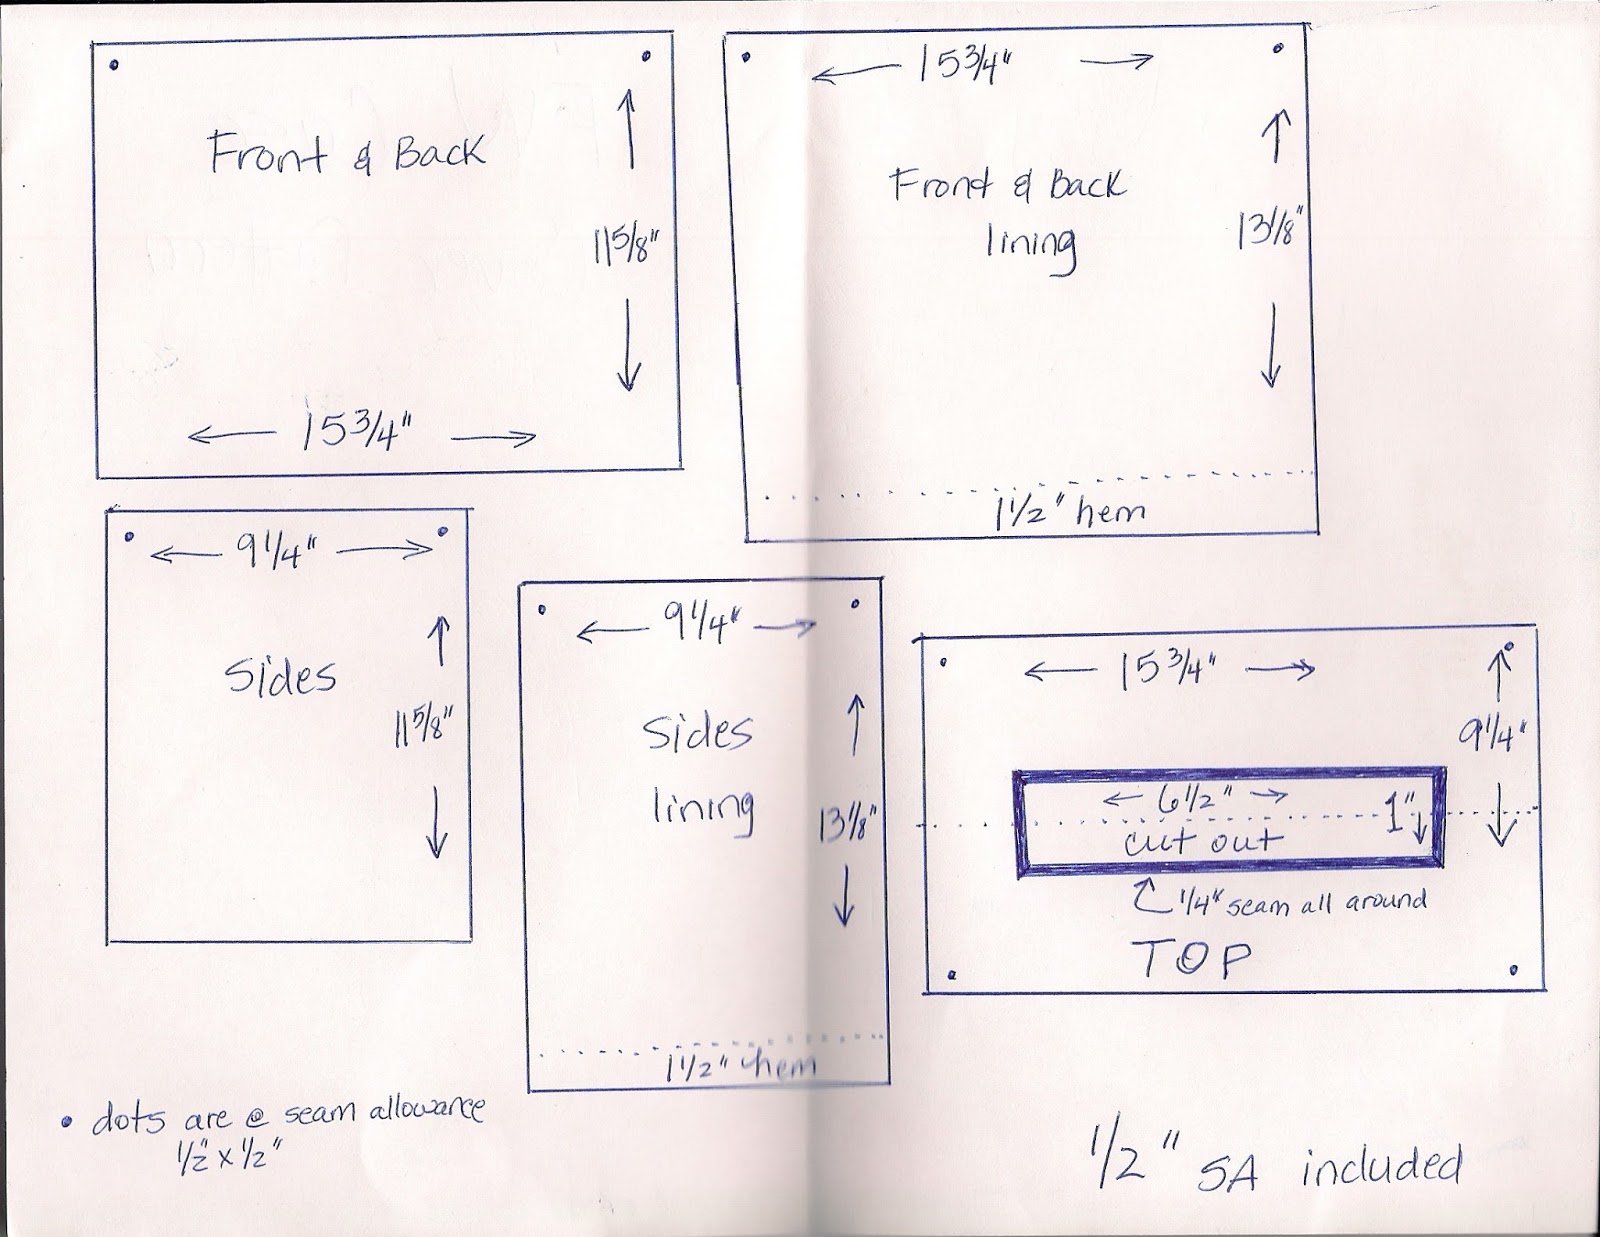 Front & Back
11 5/8"
15 3/4"
15 3/4"
Front & Back
lining
13 1/8"
1 1/2" hem
9 1/4"
Sides
11 5/8"
9 1/4"
Sides
lining
13 1/8"
1 1/2" hem
15 3/4"
9 1/4"
6 1/2"
1"
cut out
1/4" seam all around
TOP
• dots are @ seam allowance
1/2" x 1/2"
1/2" SA included